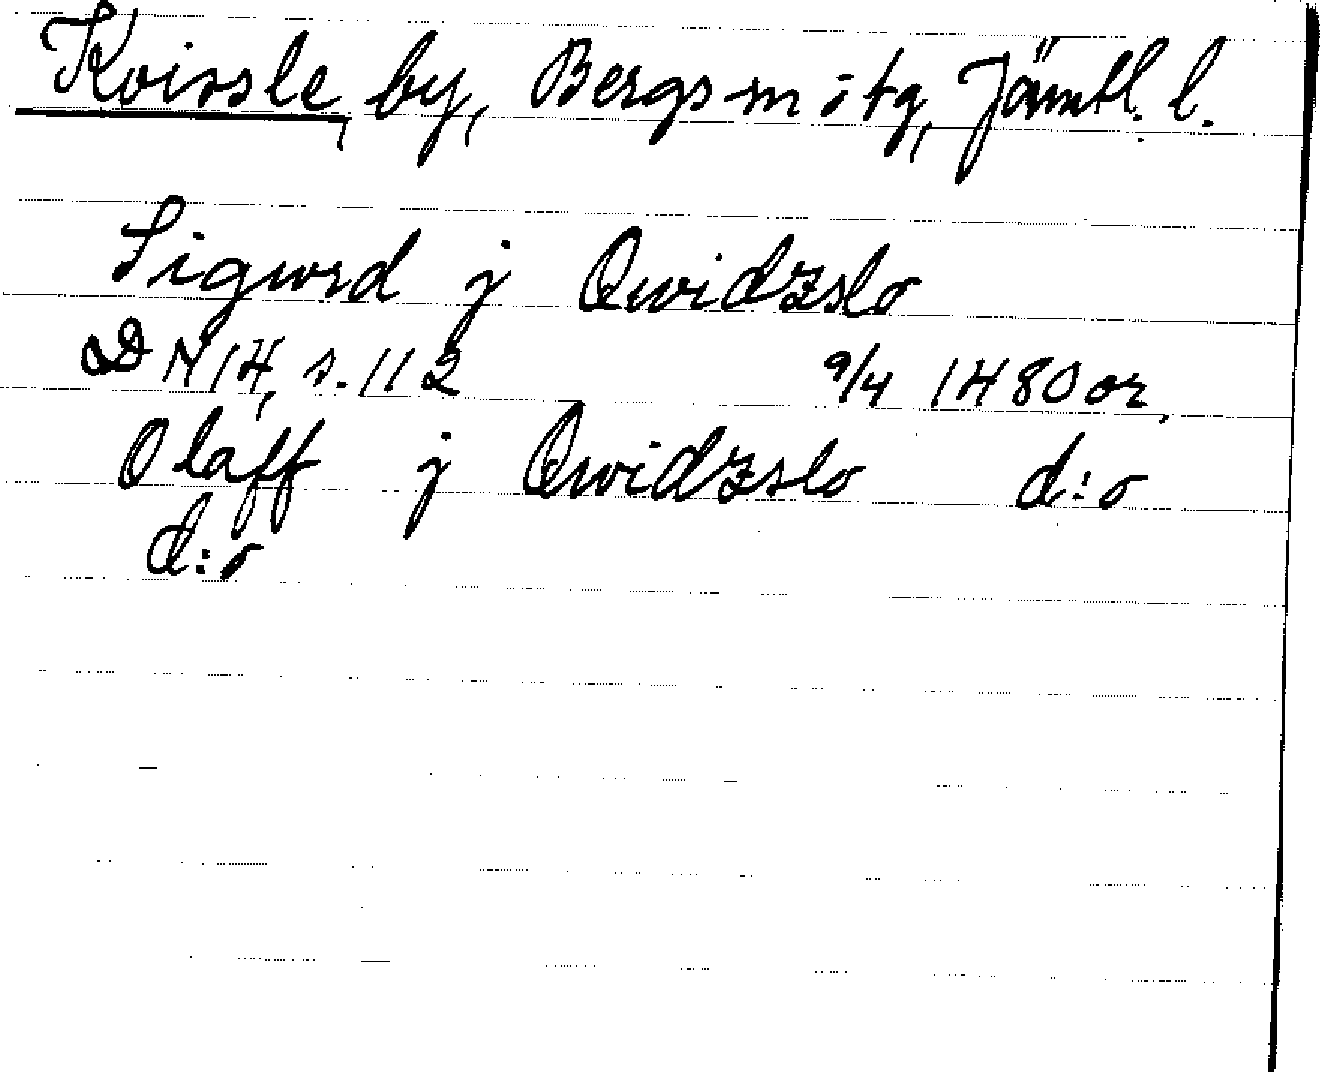 Kvissle, by, Bergs sn o tg, Jämtl. l.
Sigurd j Qwidzslo
DN 14, s. 112 9/4 1480 or.
Olaff j Qwidzslo d:o
d:o